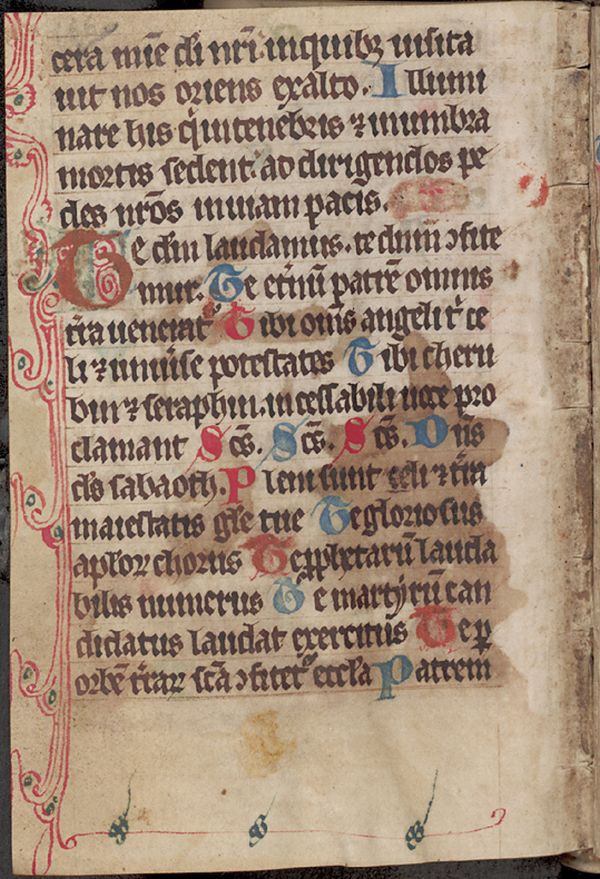 cera mīe dī nr̄i. inquibꝫ uisita
uit nos oriens exalto. Illumi
nare his qͥ intenebris ⁊ inumbra
mortis sedent. ad dirigendos pe
des nr̄os inuiam pacis.
Te dm̄ laudamus. te dnm̄ ↄfite
mur. Te et̄nū patrē omnis
t̄ra uenerat᷑ Tibi om̄s angeli t ce
li ⁊ uniūse potestates Tibi cheru
bin ⁊ seraphin. incessabili uoce pro
clamant Scs̄. Scs̄. Scs̄. Dn̄s
ds̄ sabaoth. Pleni sunt celi ⁊ t̄ra
maiestatis gl̄e tue Te gloriosus
apl̄oꝝ chorus Te ꝓph̄etarū lauda
bilis numerus Te martyrū can
didatus laudat exercitus Te ꝑ
orbē t̄raꝝ sc̄a ↄfitet᷑ eccl̄a Patrem